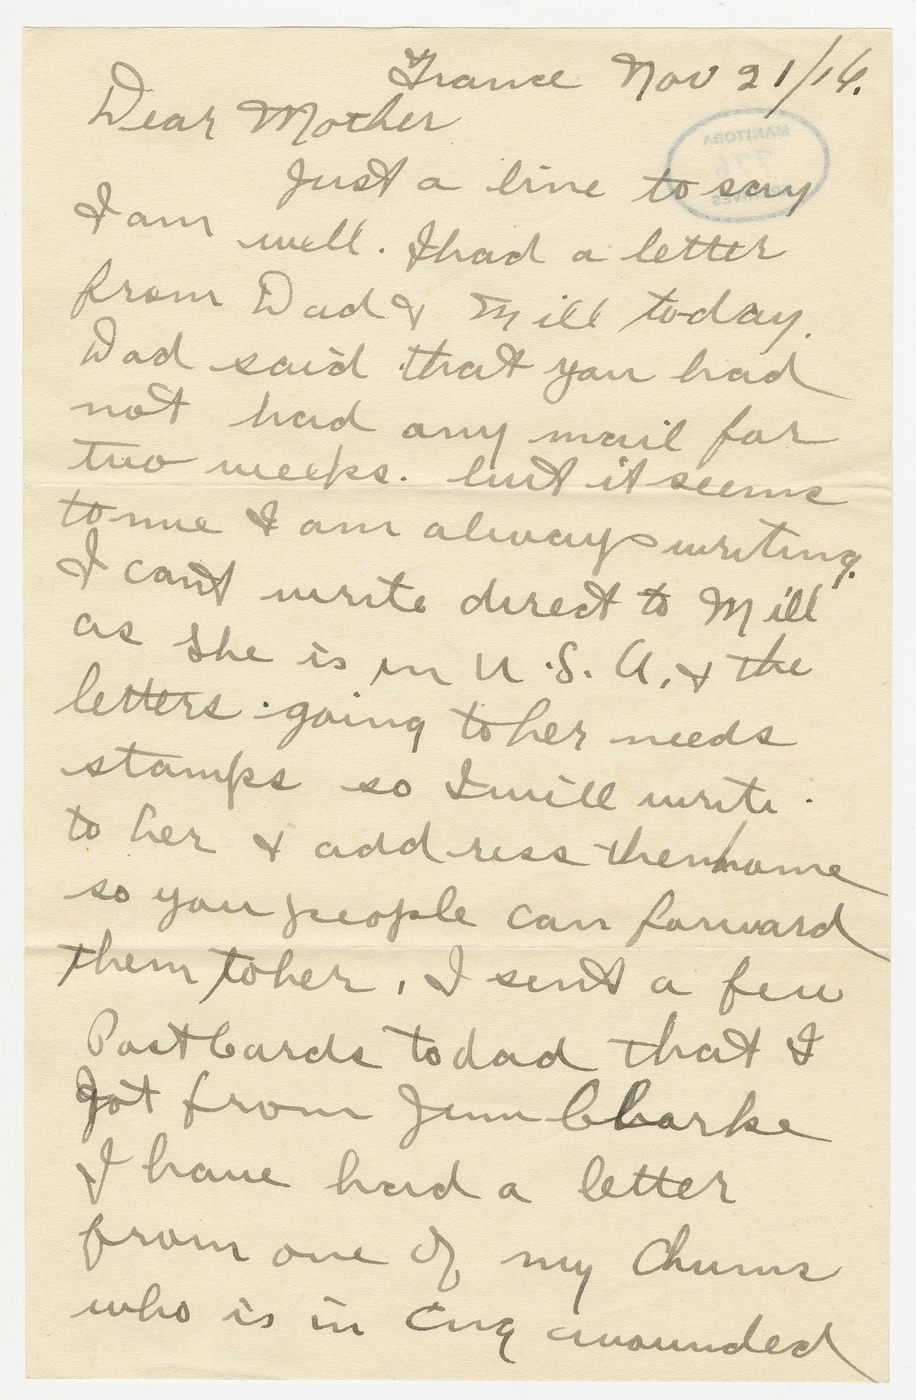 France Nov 21/16.
Dear Mother
Just a line to say
I am well. I had a letter
from Dad & Mill today.
Dad said that you had
not had any mail for
two weeks. but it seems
to me I am always writing.
I cant write direct to Mill
as she is in U.S.A. & the
letters going to her needs
stamps so I will write
to her & address them home
so you people can forward
them to her, I sent a few
Post Cards to dad that I
got from Jim Clarke
I have had a letter
from one of my Chums
who is in Eng wounded
MANITOBA
776